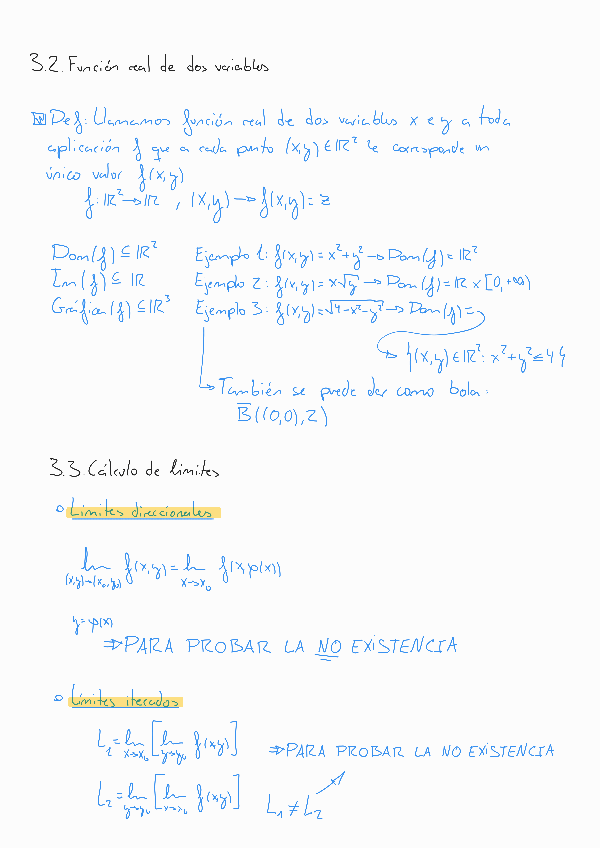 3.2. Función real de dos variables
Def: Llamamos función real de dos variables x e y a toda
aplicación f que a cada punto (x,y) ∈ ℝ² le corresponde un
único valor f(x,y)
f: ℝ² → ℝ , (x,y) → f(x,y) = z
Dom(f) ⊆ ℝ²
Im(f) ⊆ ℝ
Gráfica(f) ⊆ ℝ³
Ejemplo 1: f(x,y) = x² + y² → Dom(f) = ℝ²
Ejemplo 2: f(x,y) = x√y → Dom(f) = ℝ × [0,+∞)
Ejemplo 3: f(x,y) = √(4-x²-y²) → Dom(f) =
→ {(x,y) ∈ ℝ²: x² + y² ≤ 4}
→ También se puede dar como bola:
B̅((0,0),2)
3.3. Cálculo de límites
Límites direccionales
lim (x,y)→(x₀,y₀) f(x,y) = lim x→x₀ f(x,φ(x))
y = φ(x)
⇒ PARA PROBAR LA NO EXISTENCIA
Límites iterados
L₁ = lim x→x₀ [lim y→y₀ f(x,y)] ⇒ PARA PROBAR LA NO EXISTENCIA
L₂ = lim y→y₀ [lim x→x₀ f(x,y)] L₁ ≠ L₂